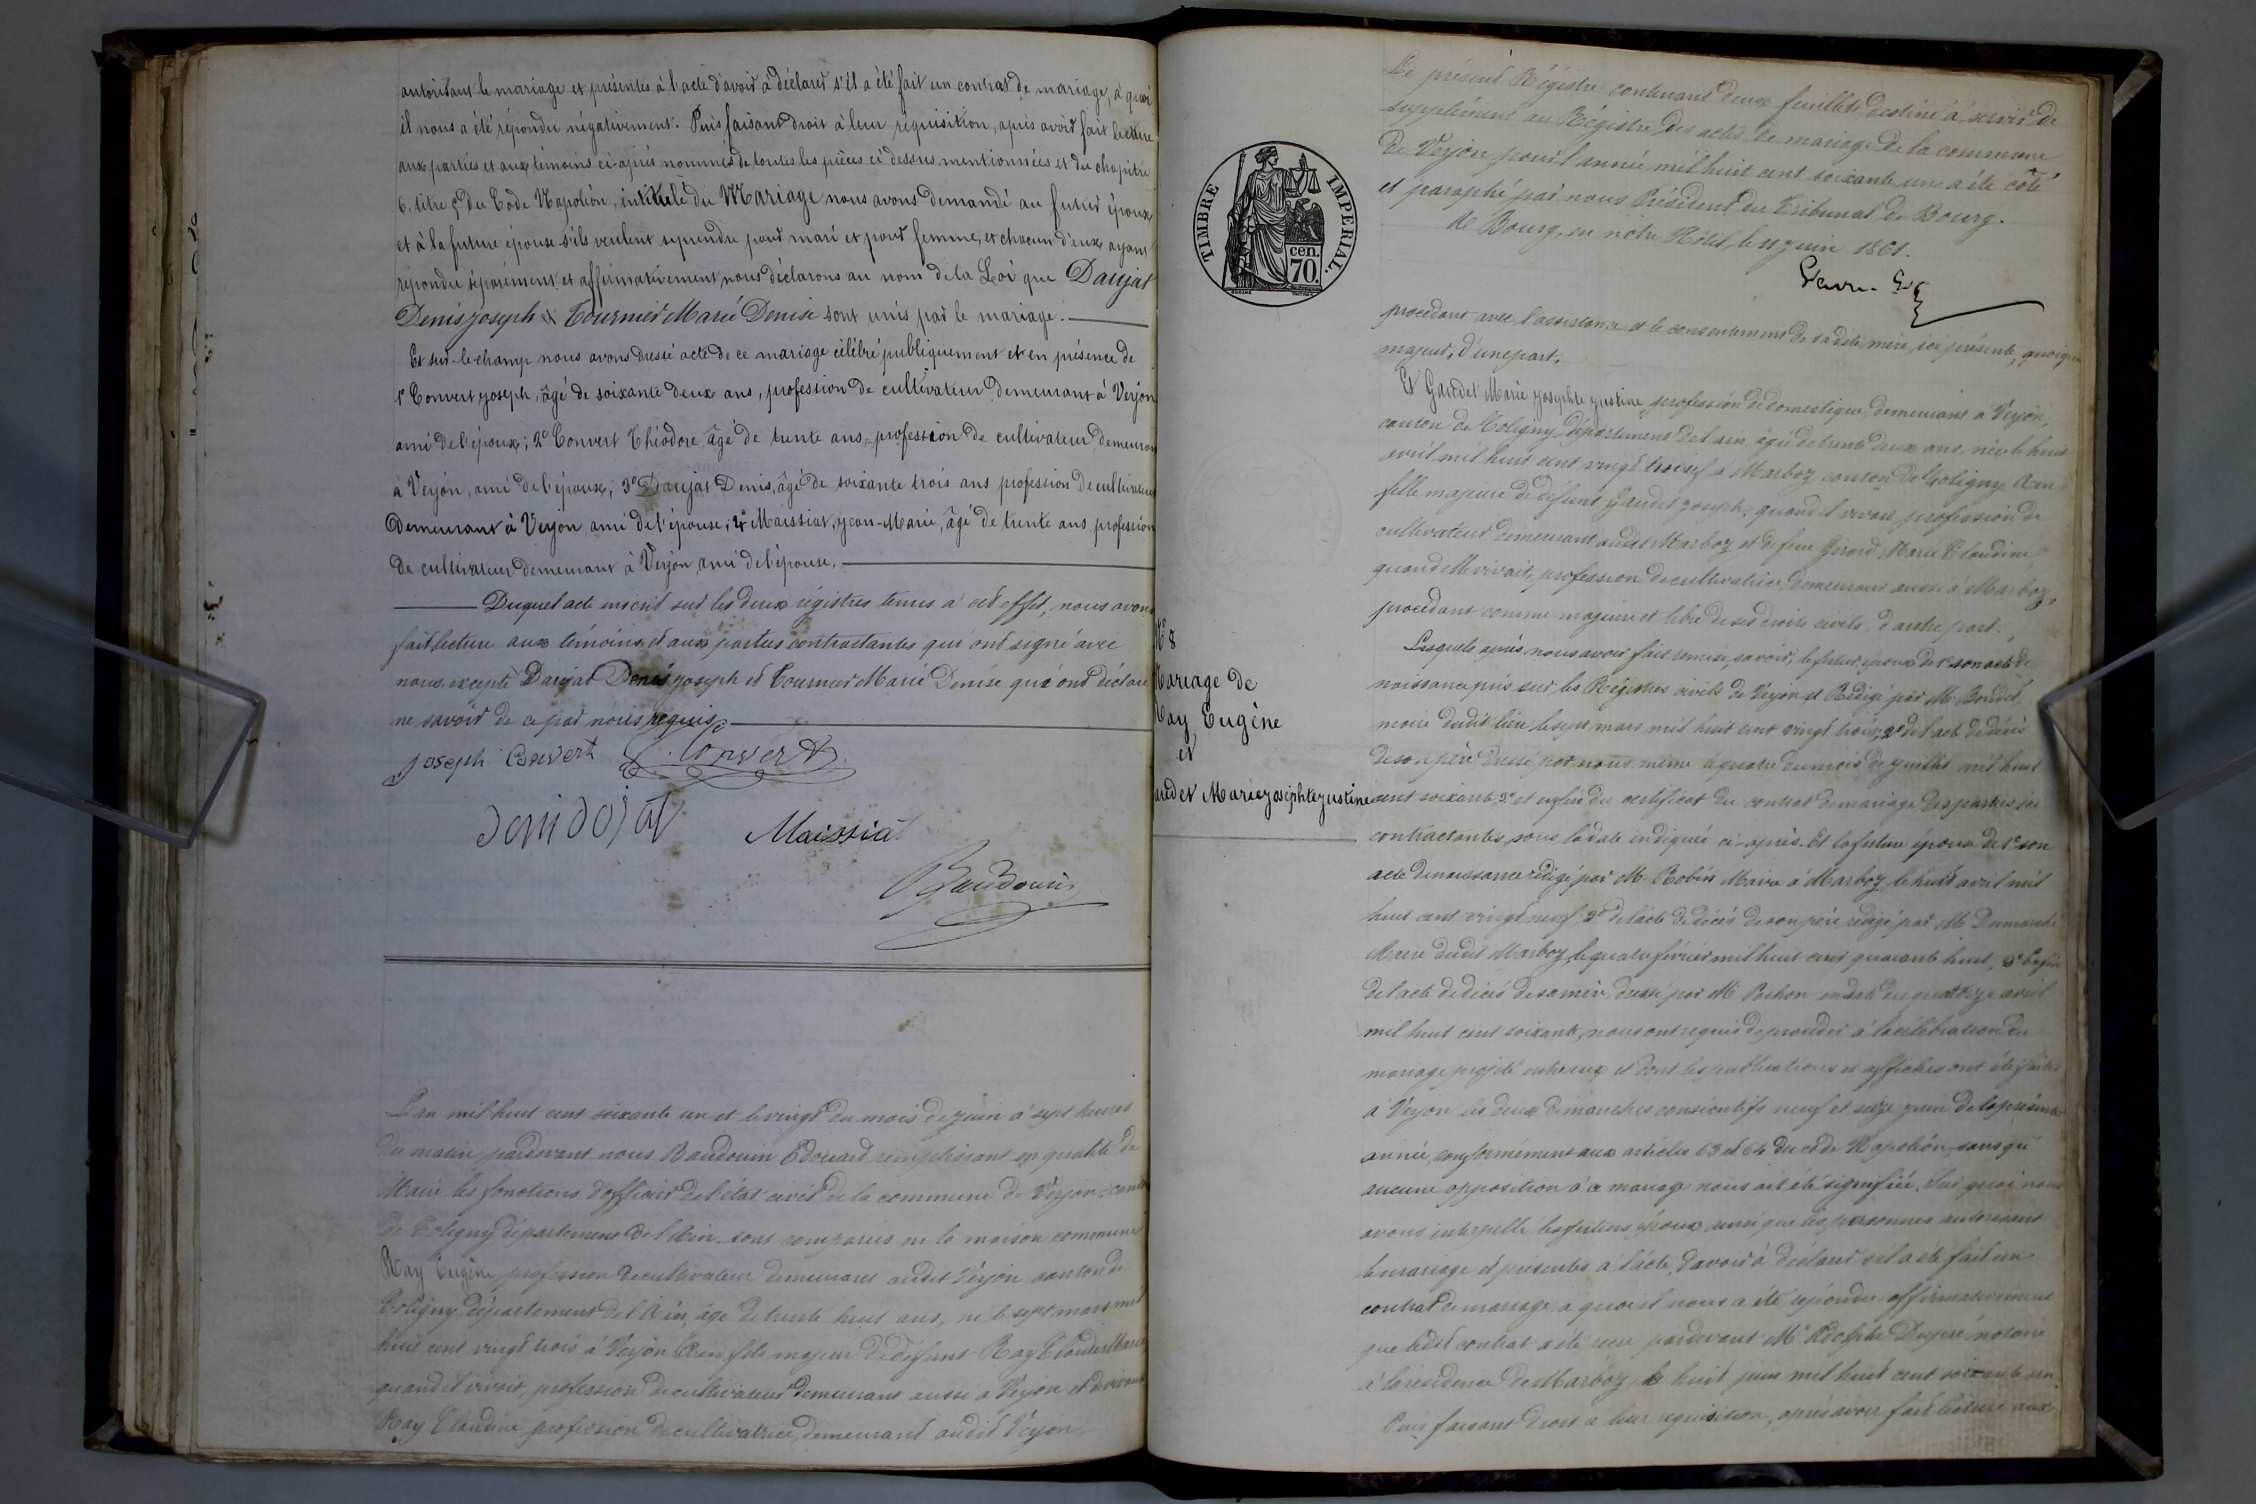 autorisant le mariage et présentes à l'acte d'avoir à déclarer s'il a été fait un contrat de mariage, à quoi
il nous a été répondu négativement. Puis faisant droit à leur réquisition, après avoir fait lecture
aux parties et aux témoins ci-après nommés de toutes les pièces ci dessus mentionnées et du chapitre
6. titre 5 du Code Napoléon, intitulé du Mariage nous avons demandé au futur époux
et à la future épouse s'ils veulent se prendre pour mari et pour femme, et chacun d'eux ayant
répondu séparément et affirmativement, nous déclarons au nom de la Loi que Daujat
Denis joseph & Tournier Marie Denise sont unis par le mariage.
Et sur-le-champ nous avons dressé acte de ce mariage célébré publiquement et en présence de
1° Convert joseph, âgé de soixante deux ans, profession de cultivateur demeurant à Verjon
ami de l'époux; 2° Convert Théodore, âgé de trente ans, profession de cultivateur demeuran
à Verjon, ami de l'époux; 3° Daujat Denis, âgé de soixante trois ans profession de cultivateur
demeurant à Verjon ami de l'épouse; 4° Maissiat, jean-Marie, âgé de trente ans profession
de cultivateur demeurant à Verjon, ami de l'épouse.
Duquel acte inscrit sur les deux régistres tenus à cet effet, nous avons
fait lecture aux témoins et aux parties contractantes qui ont signé avec
nous excepté Daujat Denis joseph et Tournier Marie Denise qui ont déclaré
ne savoir de ce par nous requis.
joseph Convert Convert
Maissiat
Baudouin
L'an mil huit cent soixante un et le vingt du mois de juin à sept heures
du matin pardevant nous Baudouin Edouard remplissant en qualité de
Maire les fonctions d'officier de l'état civil de la commune de Verjon, canton
de Coligny département de l'Ain sont comparus en la maison commune
Ray Eugène profession de cultivateur demeurant audit Verjon canton de
Coligny département de l'Ain, âgé de trente huit ans, né le sept mars mil
huit cent vingt trois à Verjon Ain fils majeur de défunt Ray Claude Marie
quand il vivait, profession de cultivateur demeurant aussi à Verjon et de vivante
Ray Claudine profession de cultivatrice, demeurant audit Verjon
TIMBRE IMPERIAL.
70. cen.
N° 8
Mariage de
Ray Eugène
et
audet Marie josephte justine
Le présent Régistre contenant deux feuillets destiné à servir de
supplément au Régistre des actes de mariage de la commune
de Verjon pour l'année mil huit cent soixante un a été coté
et paraphé par nous Président du Tribunal de Bourg.
A Bourg, en notre Hôtel, le 11 juin 1861.
procédant avec l'assistance et le consentement de sa dite mère, ici présente, quoique
majeur, d'une part.
Et Gaudet Marie josephte justine profession de domestique, demeurant à Verjon,
canton de Coligny, département de l'ain âgée de trente deux ans, née le huit
avril mil huit cent vingt neuf à Marboz canton de Coligny Ain
fille majeure de défunt Gaudet joseph, quand il vivait profession de
cultivateur demeurant audit Marboz et de feue Girard Marie Claudine,
quand elle vivait, profession de cultivatrice, demeurant aussi à Marboz,
procédant comme majeure et libre de ses droits civils, d'autre part.
Lesquels après nous avoir fait remise, savoir, le futur époux de 1° son acte de
naissance pris sur les Régistres civils de Verjon et Rédigé par M.
maire dudit lieu le sept mars mil huit cent vingt trois, 2° de l'acte de décès
de son père dressé par nous même le quatre du mois de juillet mil huit
cent soixante, 3° et enfin du certificat du contrat de mariage des parties ici
contractantes, sous la date indiquée ci-après. Et la future épouse de 1° son
acte de naissance rédigé par M. Robin Maire à Marboz le huit avril mil
huit cent vingt neuf, 2° de l'acte de décès de son père rédigé par M.
Maire dudit Marboz, le quatre février mil huit cent quarante huit, 3° Enfin
de l'acte de décès de sa mère, dressé par M. Pochon en date du quatorze avril
mil huit cent soixante, nous ont requis de procéder à la célébration du
mariage projeté entre eux et dont les publications et affiches ont été faites
à Verjon les deux dimanches consécutifs neuf et seize juin de la présente
année, conformément aux articles 63 et 64 du code Napoléon sans qu'
aucune opposition à ce mariage nous ait été signifiée. Sur quoi nous
avons interpellé les futurs époux, ainsi que les personnes autorisant
le mariage et présentes à l'acte, d'avoir à déclarer s'il a été fait un
contrat de mariage, à quoi il nous a été répondu affirmativement
que ledit contrat a été reçu pardevant Me Adolphe Dupré notaire
à la résidence de Marboz, le huit juin mil huit cent soixante un.
Puis faisant droit à leur réquisition, après avoir fait lecture aux